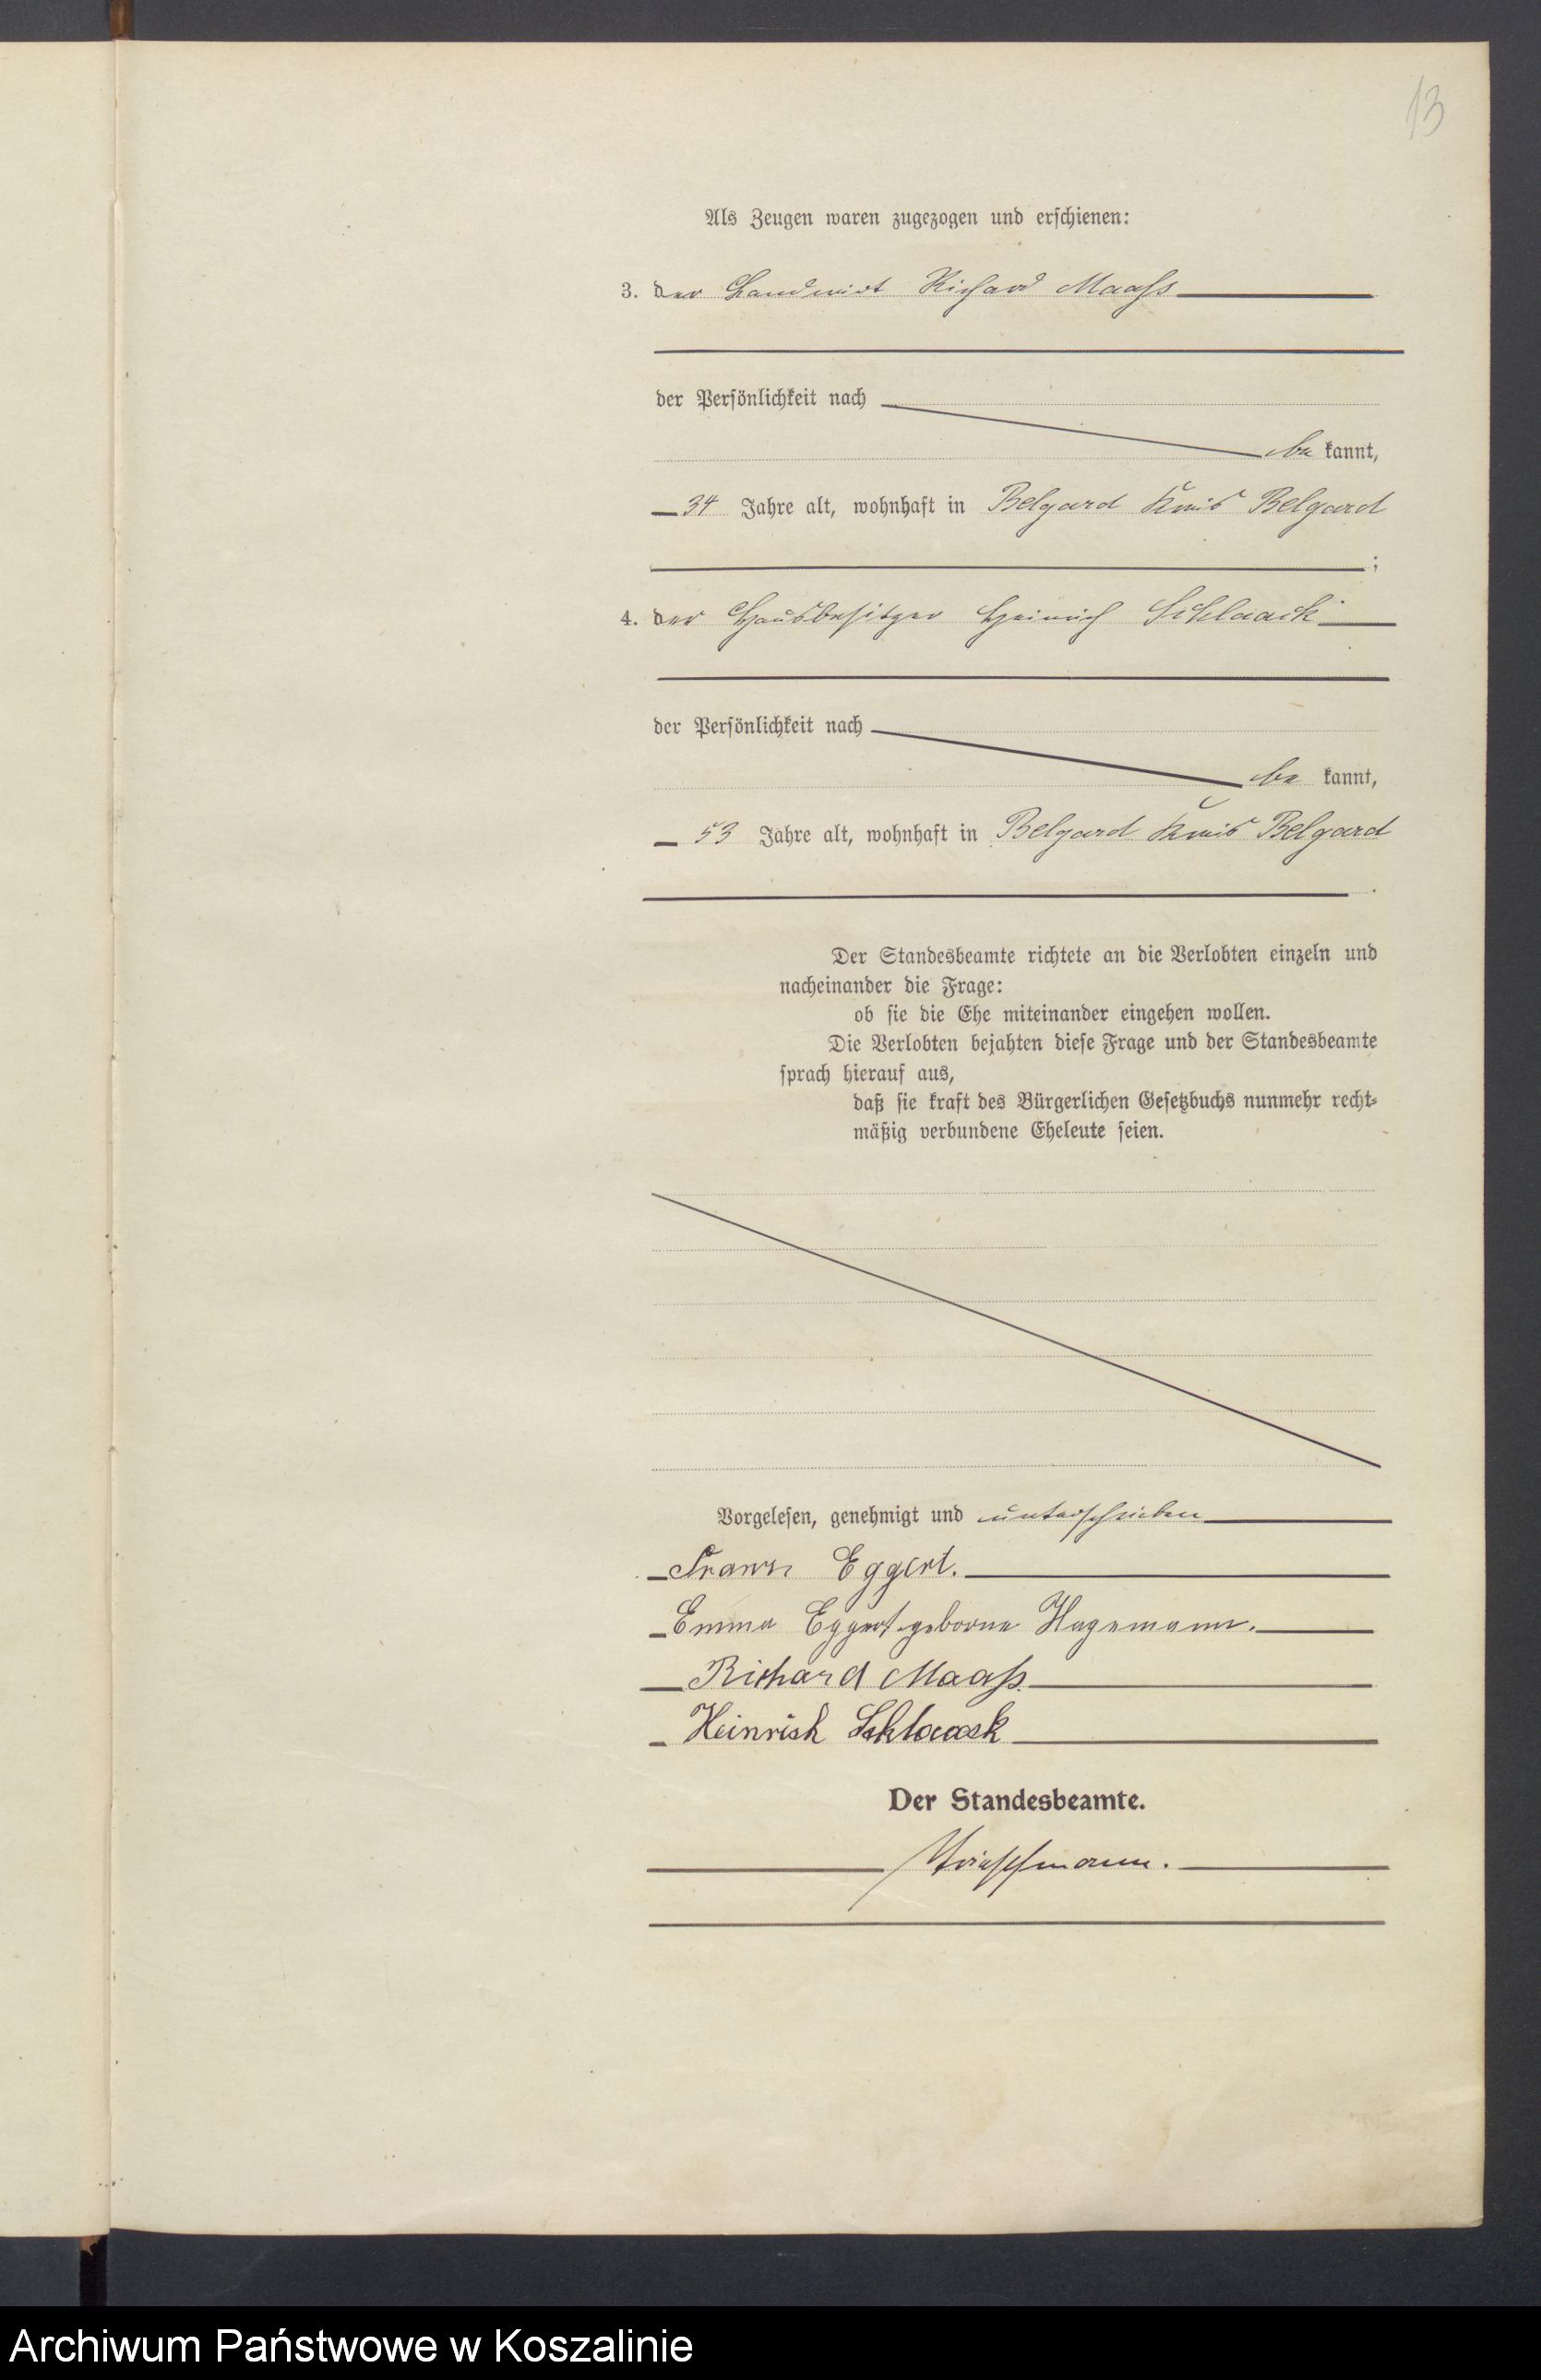 13
Als Zeugen waren zugezogen und erschienen:
3. der Landwirt Richard Maaß
der Persönlichkeit nach
be kannt,
34 Jahre alt, wohnhaft in Belgard Kreis Belgard
;
4. der Hausbesitzer Heinrich Schlaack
der Persönlichkeit nach
be kannt,
53 Jahre alt, wohnhaft in Belgard Kreis Belgard
.
Der Standesbeamte richtete an die Verlobten einzeln und
nacheinander die Frage:
ob sie die Ehe miteinander eingehen wollen.
Die Verlobten bejahten diese Frage und der Standesbeamte
sprach hierauf aus,
daß sie kraft des Bürgerlichen Gesetzbuchs nunmehr recht-
mäßig verbundene Eheleute seien.
Vorgelesen, genehmigt und unterschrieben
Franz Eggert.
Emma Eggert geborne Hagemann.
Richard Maaß.
Heinrich Schlaack
Der Standesbeamte.
Archiwum Państwowe w Koszalinie